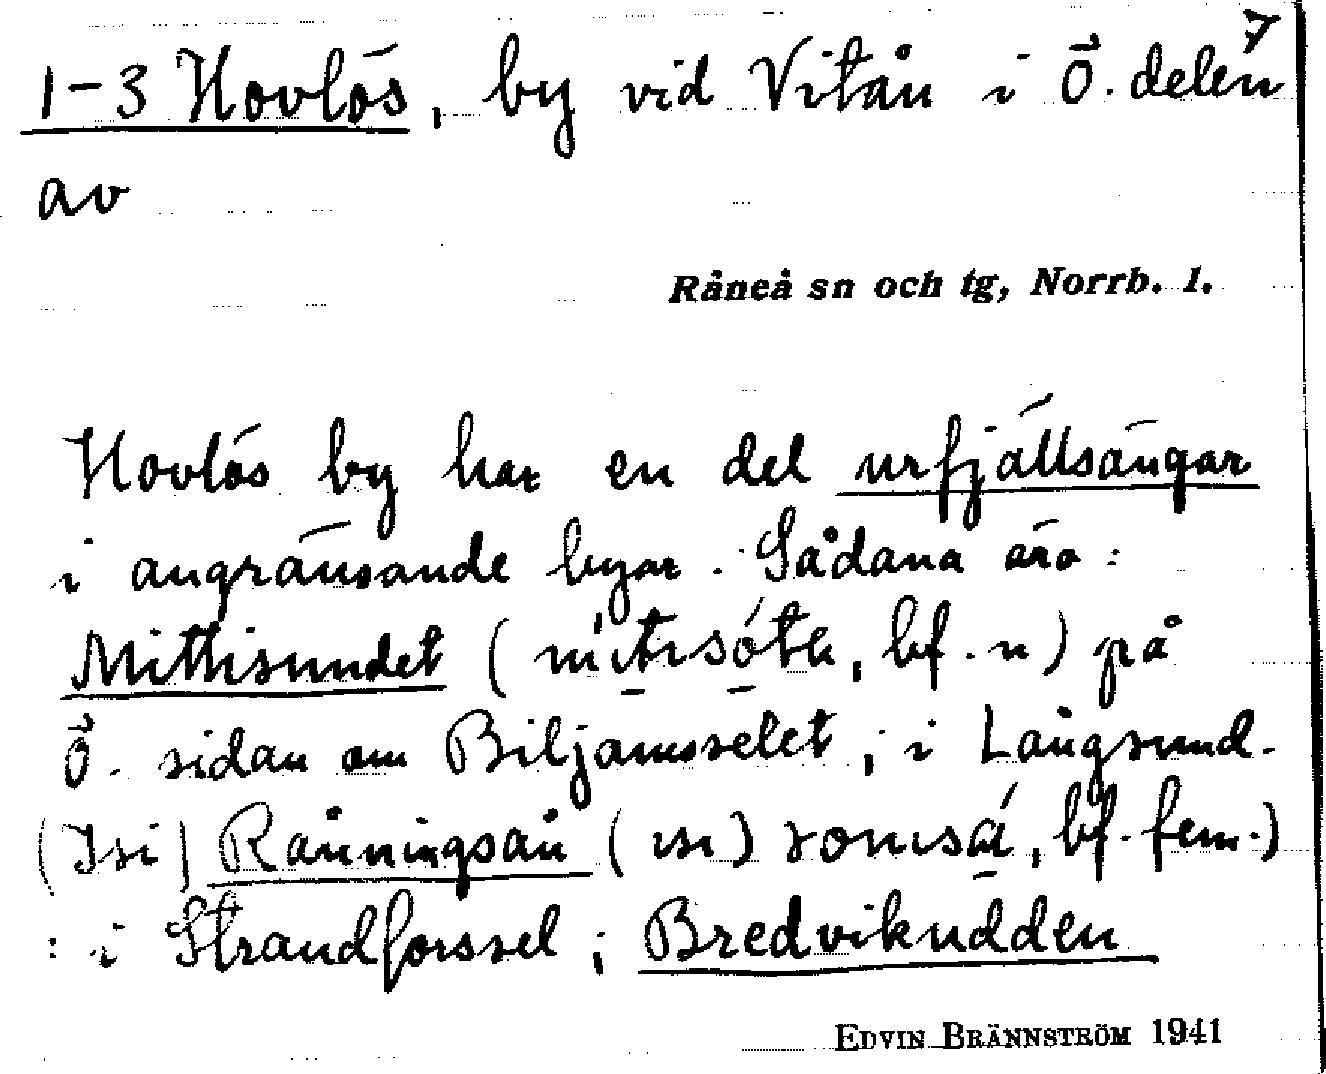 7
1-3 Hovlös, by vid Vitån i Ö. delen
av
Råneå sn och tg, Norrb. l.
Hovlös by har en del urfjällsängar
i angränsande byar. Sådana äro:
Mittisundet ( bf. n) på
Ö. sidan om Biljamsselet; i Långsund-
(Isi) Rånningsån ( bf. fem.)
: i Strandforssel; Bredvikudden
EDVIN BRÄNNSTRÖM 1941